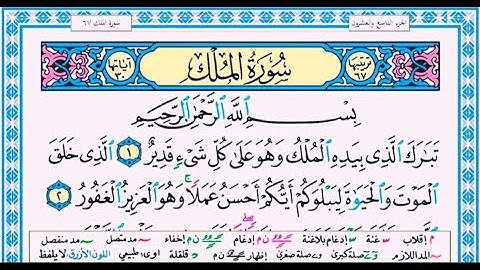 الجزء التاسع والعشرون
سورة الملك ٦٧
ترتيبها ٦٧
سُورَةُ المُلْكِ
آياتها ٣٠
بِسْمِ اللَّهِ الرَّحْمَٰنِ الرَّحِيمِ
تَبَارَكَ الَّذِي بِيَدِهِ الْمُلْكُ وَهُوَ عَلَىٰ كُلِّ شَيْءٍ قَدِيرٌ ١ الَّذِي خَلَقَ
الْمَوْتَ وَالْحَيَوٰةَ لِيَبْلُوَكُمْ أَيُّكُمْ أَحْسَنُ عَمَلًا ۚ وَهُوَ الْعَزِيزُ الْغَفُورُ ٢
م إقلاب غنة إدغام بلاغنة ن م إدغام ن م إخفاء مد متصل مد منفصل
المد اللازم صلة كبرى صلة صغرى إظهار ن م قلقلة ا و ى طبيعي اللون الأزرق لا يلفظ